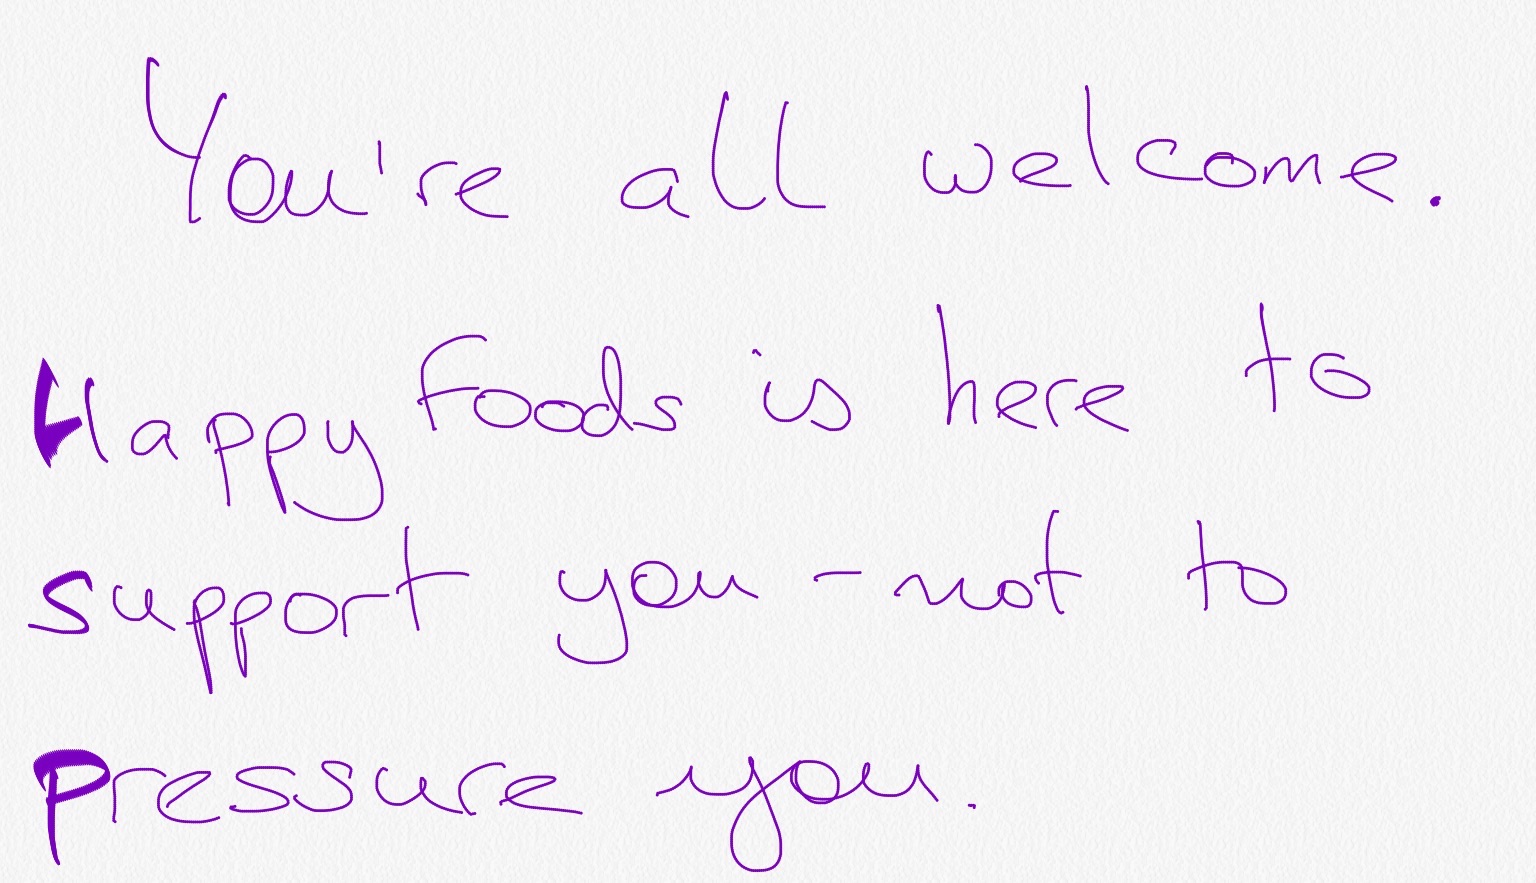 You're all welcome.
Happy Foods is here to
support you - not to
pressure you.